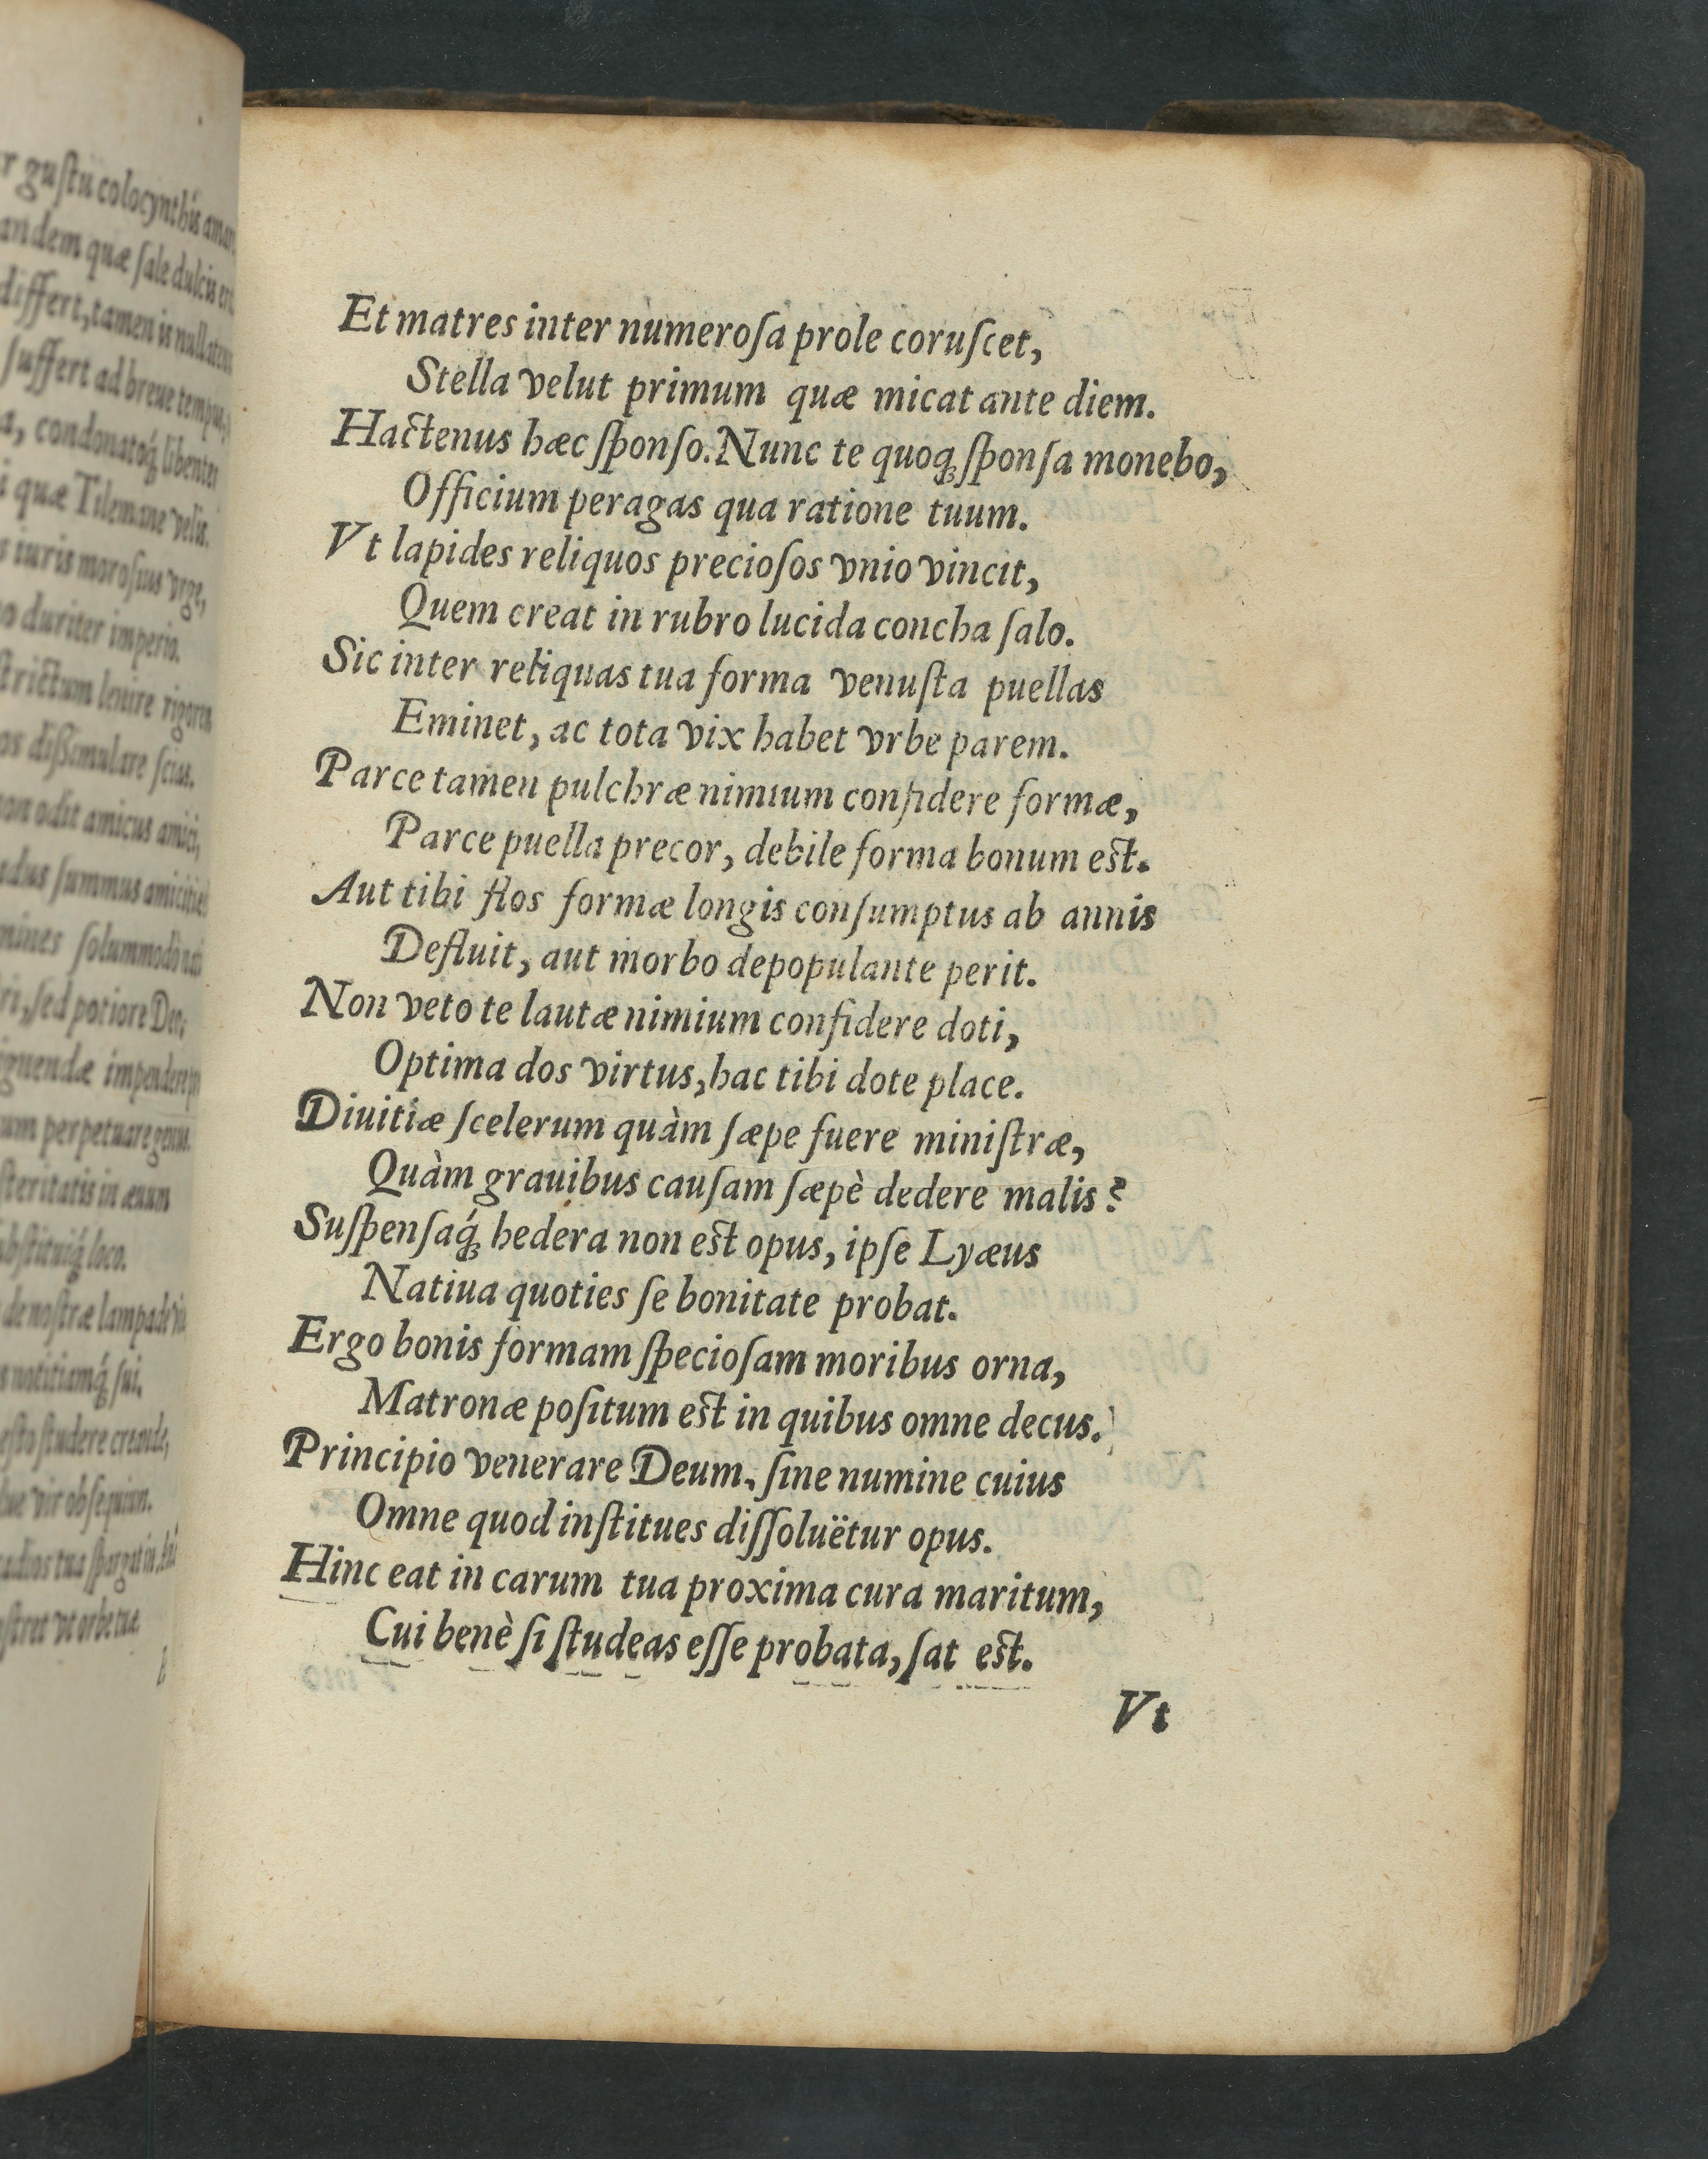 r guſtu colocynthis
andem quæ ſale dulcis
differt, tamen is
ſuffert ad breue tempus,
a, condonatoq́; libenter
i quæ Tilemanne velis.
s iuris moroſius vrge,
o duriter imperio.
ſtrictum lenire rigorem
os diſſimulare ſcias.
non odit amicus amici,
ſummus
mines ſolummodò
ri, ſed potiore Deo,
impendere
um perpetuare genus.
ſteritatis in æuum
ſubſtituiq́; loco.
de noſtræ lampade
s notitiamq́; ſui.
eſto ſtudere
vir obſequium.
radios tua ſpargat in
vt orbe tuæ
Et matres inter numeroſa prole coruſcet,
Stella velut primum quæ micat ante diem.
Hactenus hæc ſponſo. Nunc te quoq; ſponſa monebo,
Officium peragas qua ratione tuum.
Vt lapides reliquos precioſos vnio vincit,
Quem creat in rubro lucida concha ſalo.
Sic inter reliquas tua forma venuſta puellas
Eminet, ac tota vix habet vrbe parem.
Parce tamen pulchræ nimium confidere formæ,
Parce puella precor, debile forma bonum est.
Aut tibi flos formæ longis conſumptus ab annis
Defluit, aut morbo depopulante perit.
Non veto te lautæ nimium confidere doti,
Optima dos virtus, hac tibi dote place.
Diuitiæ ſcelerum quàm ſæpe fuere miniſtræ,
Quàm grauibus cauſam ſæpè dedere malis?
Suſpenſaq́; hedera non est opus, ipſe Lyæus
Natiua quoties ſe bonitate probat.
Ergo bonis formam ſpecioſam moribus orna,
Matronæ poſitum est in quibus omne decus.
Principio venerare Deum, ſine numine cuius
Omne quod inſtitues diſſoluëtur opus.
Hinc eat in carum tua proxima cura maritum,
Cui benè ſi ſtudeas eſſe probata, ſat est.
Vt